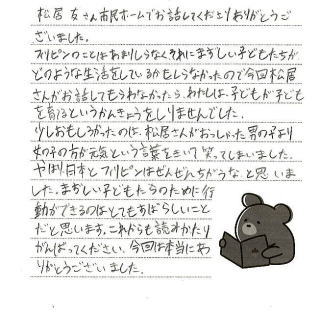 松居 友さん市民ホームでお話してくださりありがとうご
ざいました。
フィリピンのことはあまりしらなくそれにまずしい子どもたちが
どのような生活をしているかもしらなかったので今回松居
さんがお話してもらわなかったら、わたしは、子どもが子ども
を育るというかんきょうをしりませんでした。
少しおもしろかったのは、松居さんがおっしゃった男の子より
女の子の方が元気という言葉をきいて笑ってしまいました。
やはり日本とフィリピンはぜんぜんちがうな、と思いま
した。まずしい子どもたちのために行
動ができるのはとてもすばらしいこと
だと思います。これからも読みがたり
がんばってください。今回は本当にあ
りがとうございました。